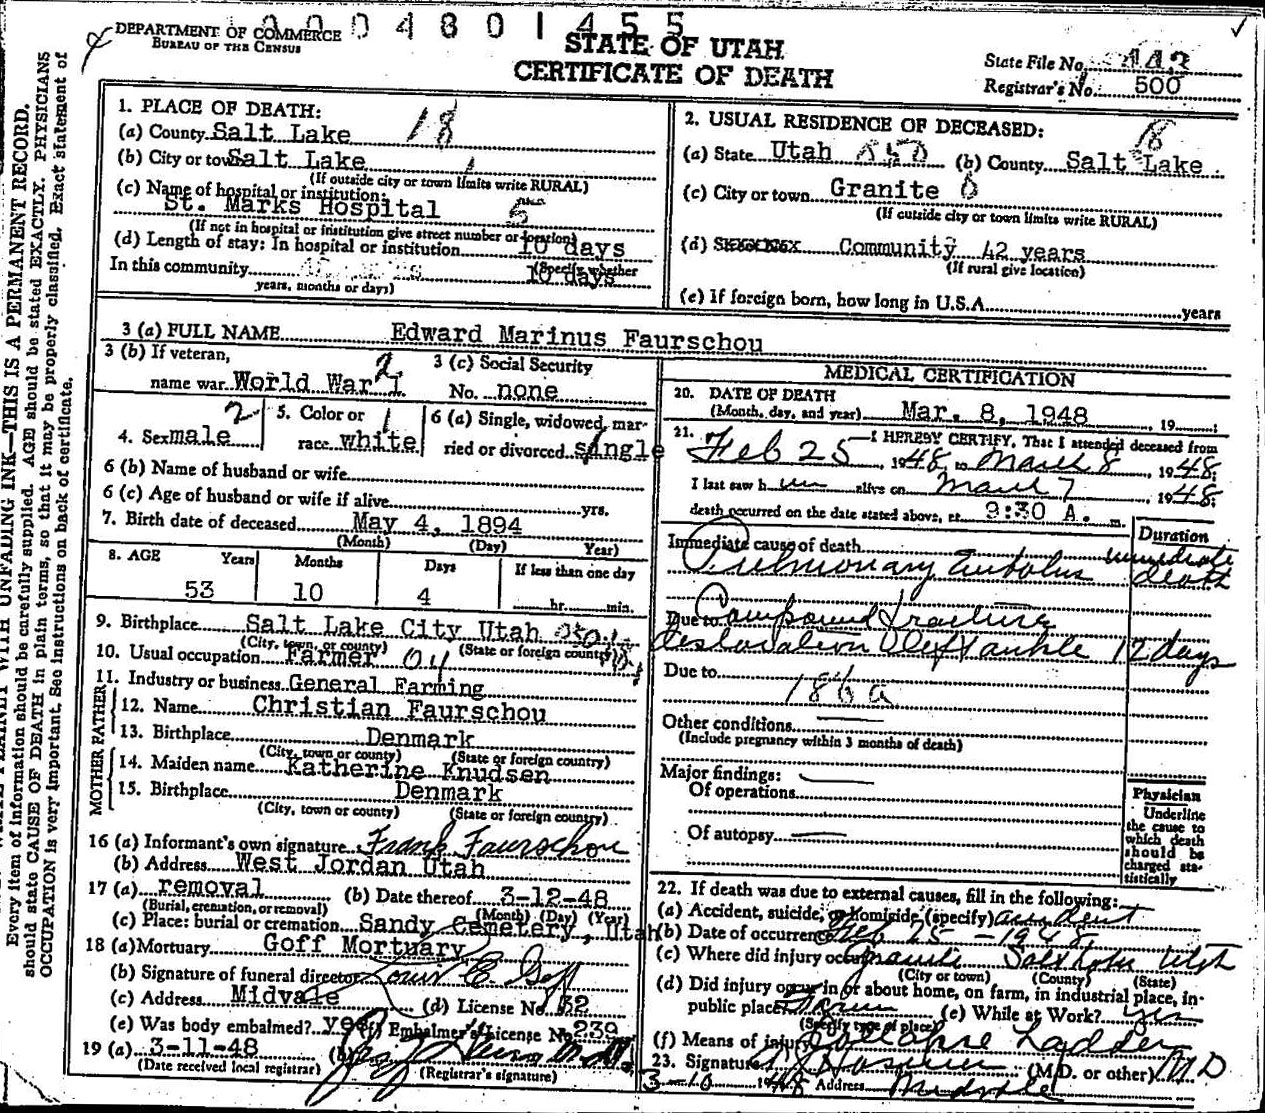 0004801455
DEPARTMENT OF COMMERCE
BUREAU OF THE CENSUS
STATE OF UTAH
CERTIFICATE OF DEATH
State File No. 443
Registrar's No. 500
Every item of information should be carefully supplied. AGE should be stated EXACTLY. PHYSICIANS
should state CAUSE OF DEATH in plain terms, so that it may be properly classified. Exact statement of
OCCUPATION is very important. See instructions on back of certificate.
WITH UNFADING INK—THIS IS A PERMANENT RECORD.
1. PLACE OF DEATH: 18
(a) County Salt Lake
(b) City or town Salt Lake
(If outside city or town limits write RURAL)
(c) Name of hospital or institution:
St. Marks Hospital 5
(If not in hospital or institution give street number or location)
(d) Length of stay: In hospital or institution 10 days
(Specify whether
In this community 10 days
years, months or days)
2. USUAL RESIDENCE OF DECEASED: 18
(a) State Utah (b) County Salt Lake
(c) City or town Granite 0
(If outside city or town limits write RURAL)
(d) Community 42 years
(If rural give location)
(e) If foreign born, how long in U.S.A. years
3 (a) FULL NAME Edward Marinus Faurschou
3 (b) If veteran,
name war World War I 2
3 (c) Social Security
No. none
4. Sex male 2
5. Color or
race white 1
6 (a) Single, widowed, mar-
ried or divorced single
6 (b) Name of husband or wife
6 (c) Age of husband or wife if alive yrs.
7. Birth date of deceased May 4, 1894
(Month) (Day) Year)
8. AGE Years Months Days If less than one day
53 10 4 hr. min.
9. Birthplace Salt Lake City Utah
(City, town, or county) (State or foreign country)
10. Usual occupation Farmer 04
11. Industry or business General Farming
FATHER
12. Name Christian Faurschou
13. Birthplace Denmark
(City, town or county) (State or foreign country)
MOTHER
14. Maiden name Katherine Knudsen
15. Birthplace Denmark
(City, town or county) (State or foreign country)
16 (a) Informant's own signature Frank Faurschou
(b) Address West Jordan Utah
17 (a) removal (b) Date thereof 3-12-48
(Burial, cremation, or removal) (Month) (Day) (Year)
(c) Place: burial or cremation Sandy Cemetery, Utah
18 (a) Mortuary Goff Mortuary
(b) Signature of funeral director Louis E. Goff
(c) Address Midvale (d) License No. 132
(e) Was body embalmed? yes (f) Embalmer's License No. 239
19 (a) 3-11-48 (b)
(Date received local registrar) (Registrar's signature)
MEDICAL CERTIFICATION
20. DATE OF DEATH
(Month, day, and year) Mar. 8, 1948, 19
21. I HEREBY CERTIFY, That I attended deceased from
Feb 25, 1948, to March 8, 1948.
I last saw him alive on March 7, 1948.
death occurred on the date stated above, at 9:30 A. m.
Duration
Immediate cause of death immediate
Pulmonary Embolus death
Due to Compound fracture
dislocation of left ankle 12 days
Due to
186a
Other conditions
(Include pregnancy within 3 months of death)
Major findings:
Of operations
Of autopsy
Physician
Underline
the cause to
which death
should be
charged sta-
tistically
22. If death was due to external causes, fill in the following:
(a) Accident, suicide, or homicide (specify) accident
(b) Date of occurrence Feb 25 - 1948
(c) Where did injury occur? Granite Salt Lake Utah
(City or town) (County) (State)
(d) Did injury occur in or about home, on farm, in industrial place, in-
public place? Farm (e) While at Work? yes
(Specify type of place)
(f) Means of injury Ladder
23. Signature (M.D. or other) MD
3-10 1948 Address Midvale